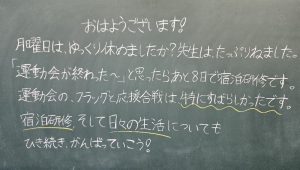 おはようございます!
月曜日は、ゆっくり休めましたか?先生は、たっぷりねました。
「運動会が終わった〜」と思ったらあと8日で宿泊研修です。
運動会の、フラッグと応援合戦は特にすばらしかったです。
宿泊研修、そして日々の生活についても
ひき続き、がんばっていこう!